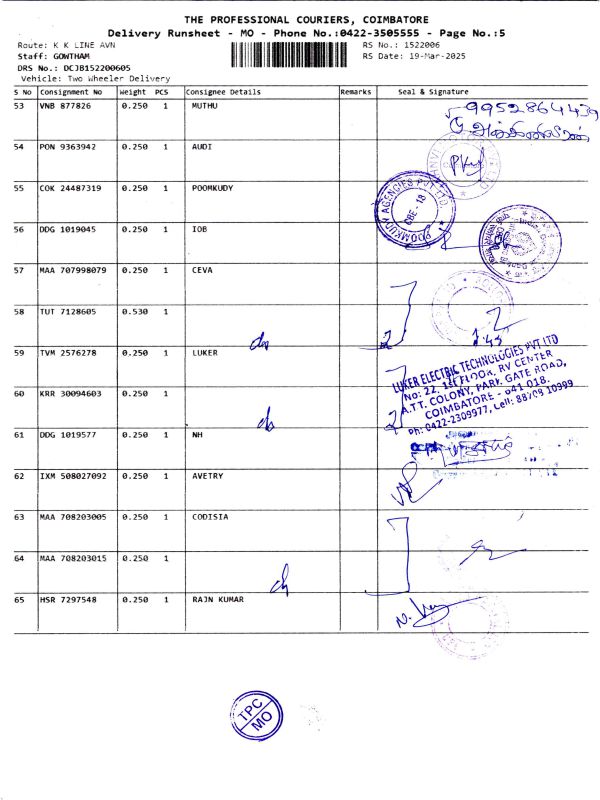 THE PROFESSIONAL COURIERS, COIMBATORE
Delivery Runsheet - MO - Phone No.:0422-3505555 - Page No.:5
Route: K K LINE AVN RS No.: 1522006
Staff: GOWTHAM RS Date: 19-Mar-2025
DRS No.: DCJB152200605
Vehicle: Two Wheeler Delivery
S No Consignment No Weight PCS Consignee Details Remarks Seal & Signature
53 VNB 877826 0.250 1 MUTHU
9952864439
54 PON 9363942 0.250 1 AUDI
55 COK 24487319 0.250 1 POOMKUDY
POOMKUDY AGENCIES PVT LTD.
CBE - 18
56 DDG 1019045 0.250 1 IOB
57 MAA 707998079 0.250 1 CEVA
58 TUT 7128605 0.530 1
2
59 TVM 2576278 0.250 1 LUKER
LUKER ELECTRIC TECHNOLOGIES PVT LTD
No: 22, 1st FLOOR, RV CENTER
A.T.T. COLONY, PARK GATE ROAD,
COIMBATORE - 641 018.
Ph: 0422-2309977, Cell: 88708 10999
60 KRR 30094603 0.250 1
2
61 DDG 1019577 0.250 1 NH
62 IXM 508027092 0.250 1 AVETRY
63 MAA 708203005 0.250 1 CODISIA
64 MAA 708203015 0.250 1
65 HSR 7297548 0.250 1 RAJN KUMAR
TPC
MO